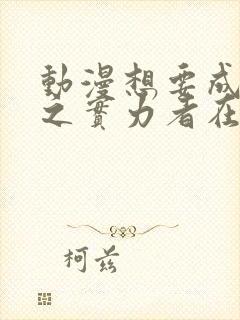 動漫想要成
之實力者在
柯茲